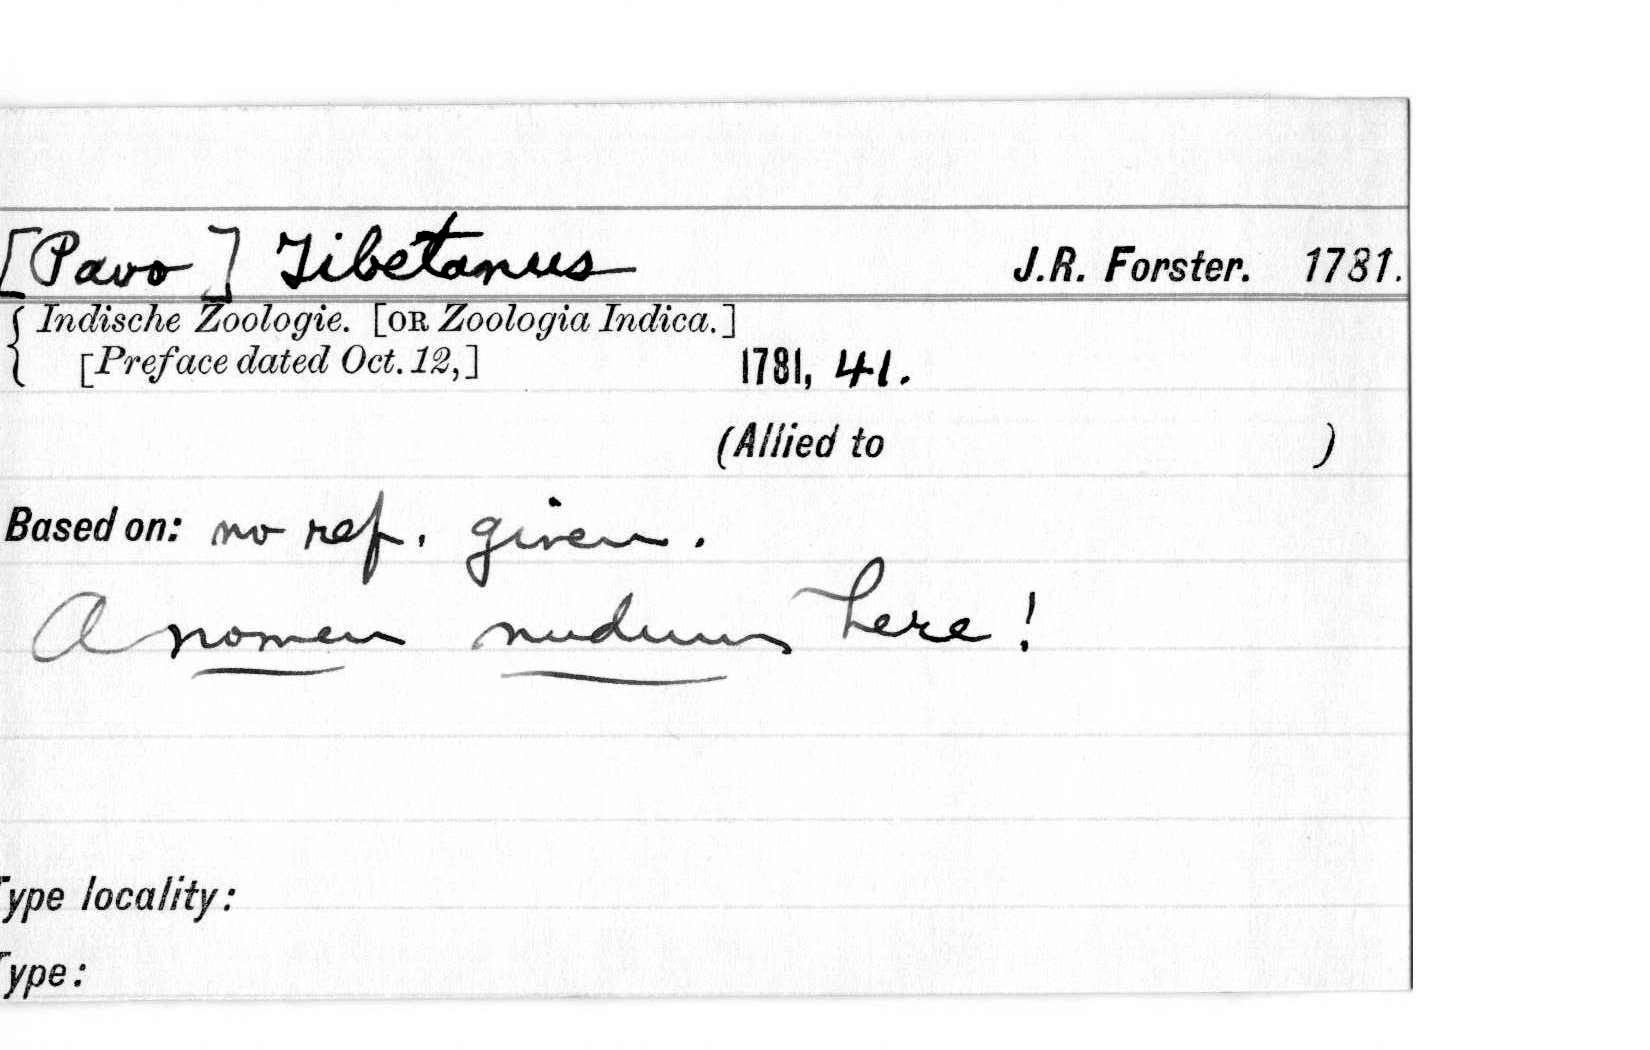 [Pavo] Tibetanus J.R. Forster. 1781.
{ Indische Zoologie. [OR Zoologia Indica.]
[Preface dated Oct. 12,] 1781, 41.
(Allied to )
Based on: no ref. given.
A nomen nudum here!
Type locality:
Type: